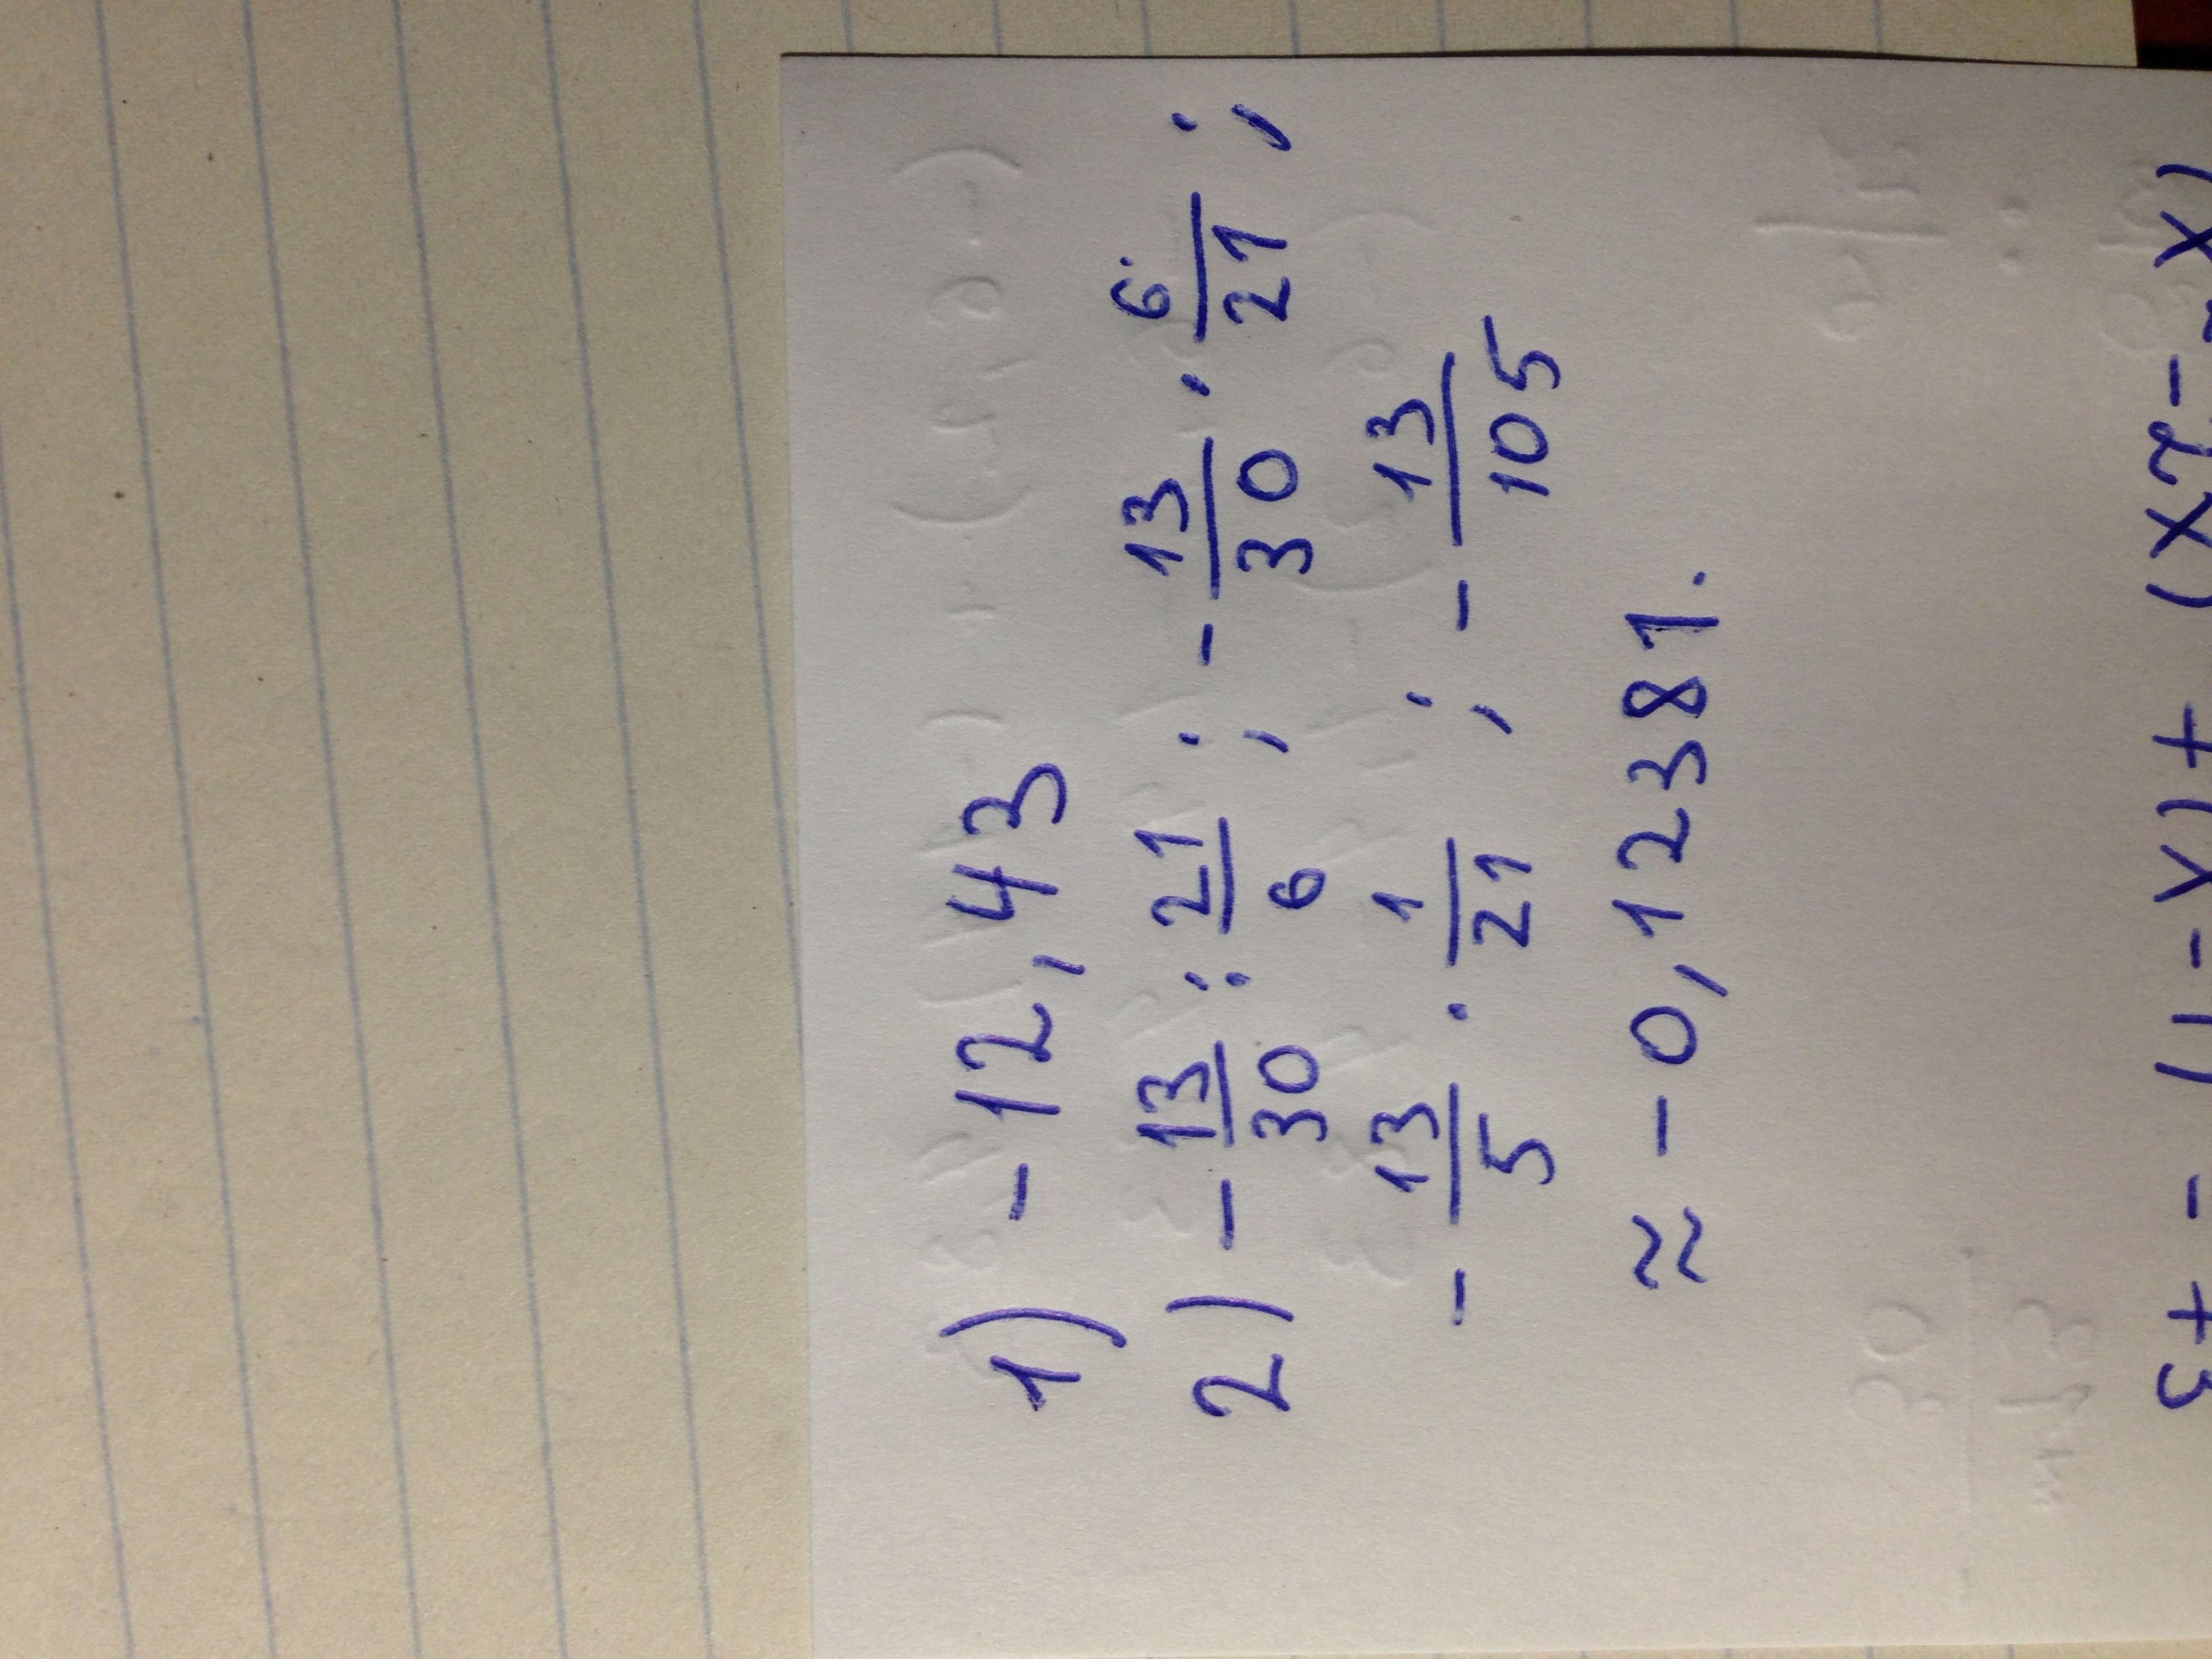 1) - 12,43
2) - 13/30 : 21/6 ; - 13/30 · 6/21 ;
- 13/5 · 1/21 ; - 13/105
≈ - 0,12381.